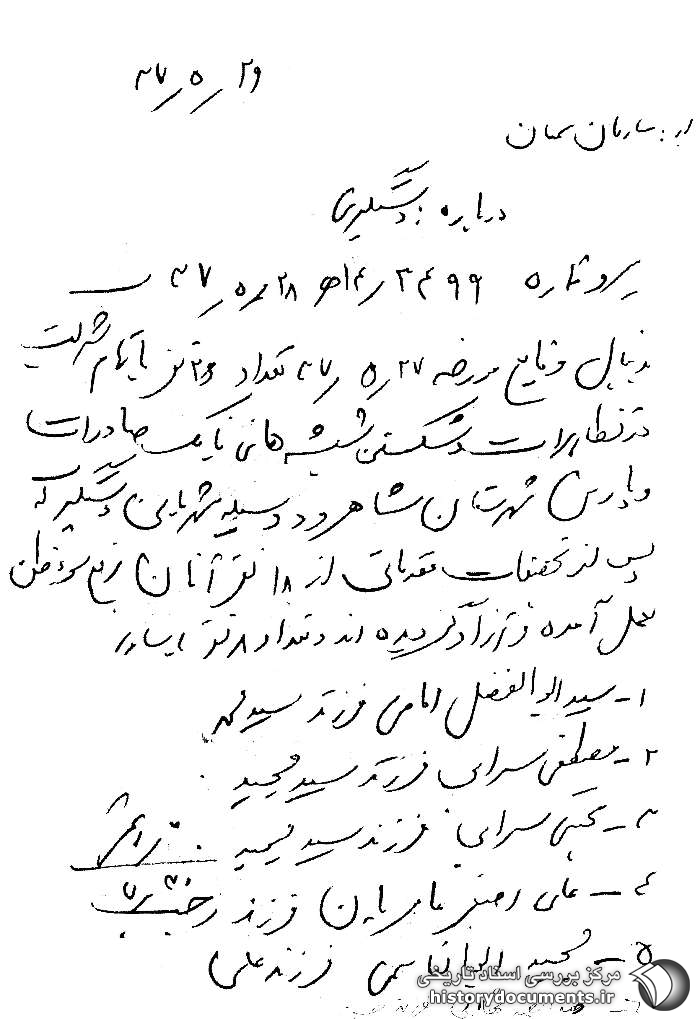 ۲۹/۵/۳۷
از: سازمان سمنان
درباره: دستگیری
پیرو شماره ۳۴۹۹/۱۴ه‍ ۲۸/۵/۳۷
بدنبال وقایع مورخه ۲۷/۵/۳۷ تعداد ۲۶ نفر باتهام شرکت
در تظاهرات و شکستن شیشه های بانک صادرات
و پارس شهرستان شاهرود وسیله شهربانی دستگیر که
پس از تحقیقات مقدماتی از ۱۸ نفر آنان رفع سوءظن
بعمل آمده و آزاد گردیده اند و تعداد ۸ نفر باسامی
۱- سید ابوالفضل امامی فرزند سید محمد
۲- مصطفی سرابی فرزند سید مجید
۳- مجتبی سرابی فرزند سید مجید
۴- علی اصغر فرزند رجب
۵- محمد فرزند علی
مرکز بررسی اسناد تاریخی
historydocuments.ir